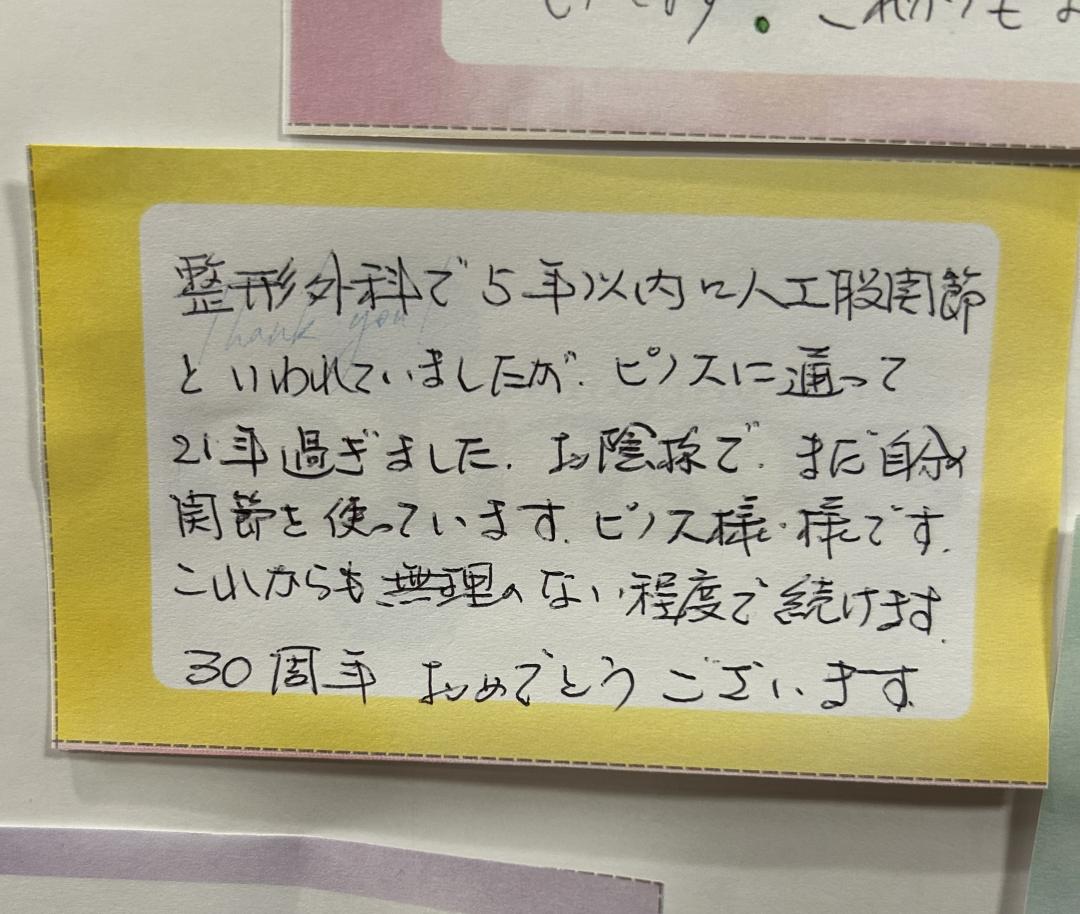 これからも
整形外科で5年以内に人工股関節
Thank you!
といわれていましたが、ピノスに通って
21年過ぎました。お陰様で、まだ自分の
関節を使っています。ピノス様・様です。
これからも無理のない程度で続けます。
30周年 おめでとうございます。